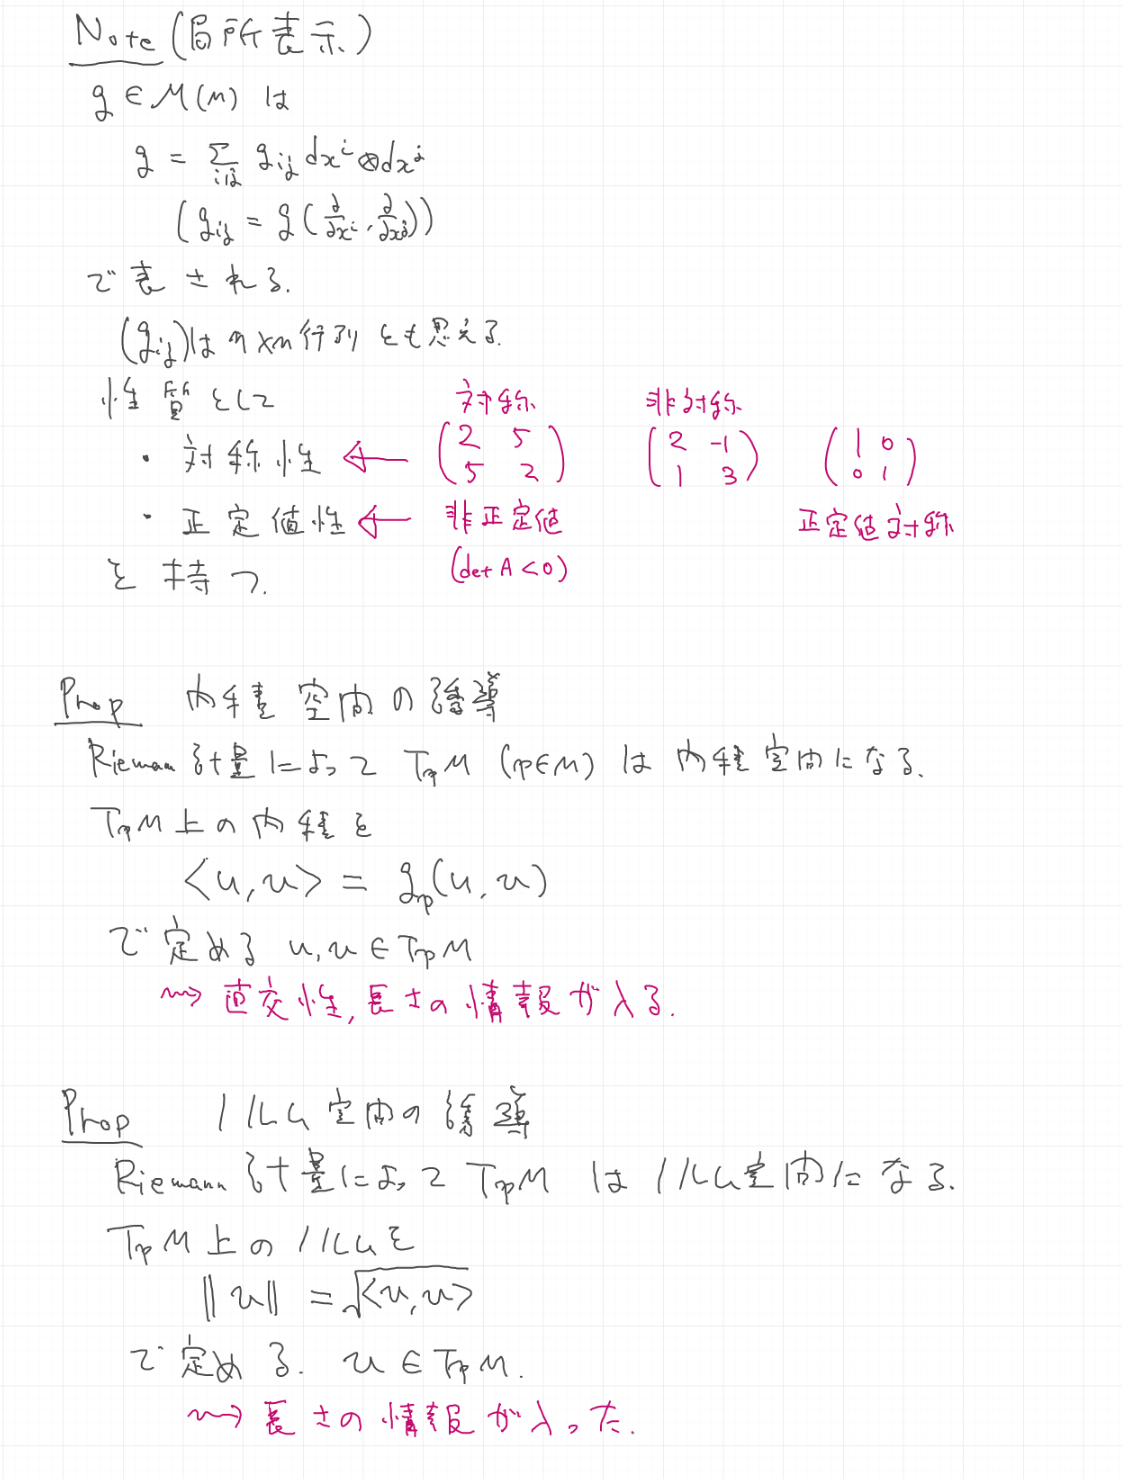 Note (局所表示)
g ∈ M(M) は
g = Σ_{i,j} g_{ij} dx^i ⊗ dx^j
(g_{ij} = g(∂/∂x^i, ∂/∂x^j))
で表される.
(g_{ij})は n×n 行列とも思える.
性質として
対称 非対称
・対称性 ← (2 5; 5 2) (2 -1; 1 3) (1 0; 0 1)
・正定値性 ← 非正定値 正定値対称
を持つ. (det A < 0)
Prop 内積空間の誘導
Riemann 計量によって T_pM (p∈M) は内積空間になる.
T_pM 上の内積を
<u, v> = g_p(u, v)
で定める u, v ∈ T_pM
⇝ 直交性, 長さの情報が入る.
Prop ノルム空間の誘導
Riemann 計量によって T_pM はノルム空間になる.
T_pM 上のノルムを
‖u‖ = √<u, u>
で定める. u ∈ T_pM.
⇝ 長さの情報が入った.